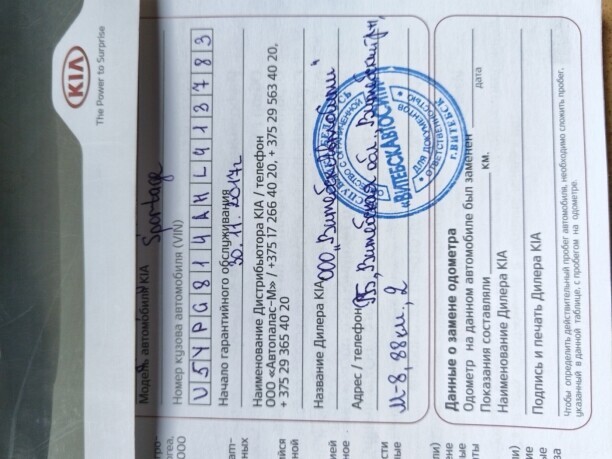 KIA
The Power to Surprise
Модель автомобиля KIA Sportage
Номер кузова автомобиля (VIN)
U5YPG814AHL413783
Начало гарантийного обслуживания
30.11.2017г
Наименование Дистрибьютора KIA / телефон
ООО «Автопалас-М» / +375 17 266 40 20, +375 29 563 40 20,
+ 375 29 365 40 20
Название Дилера KIA ООО „Витебскавтосити"
Адрес / телефон РБ, Витебская обл., Витебский р-н,
М-8, 88 км., 2
ВИТЕБСКАВТОСИТИ
ДЛЯ ДОКУМЕНТОВ
ОТВЕТСТВЕННОСТЬЮ
г. ВИТЕБСК
Данные о замене одометра
Одометр на данном автомобиле был заменен
дата
Показания составляли км.
Наименование Дилера KIA
Подпись и печать Дилера KIA
Чтобы определить действительный пробег автомобиля, необходимо сложить пробег,
указанный в данной таблице, с пробегом на одометре.